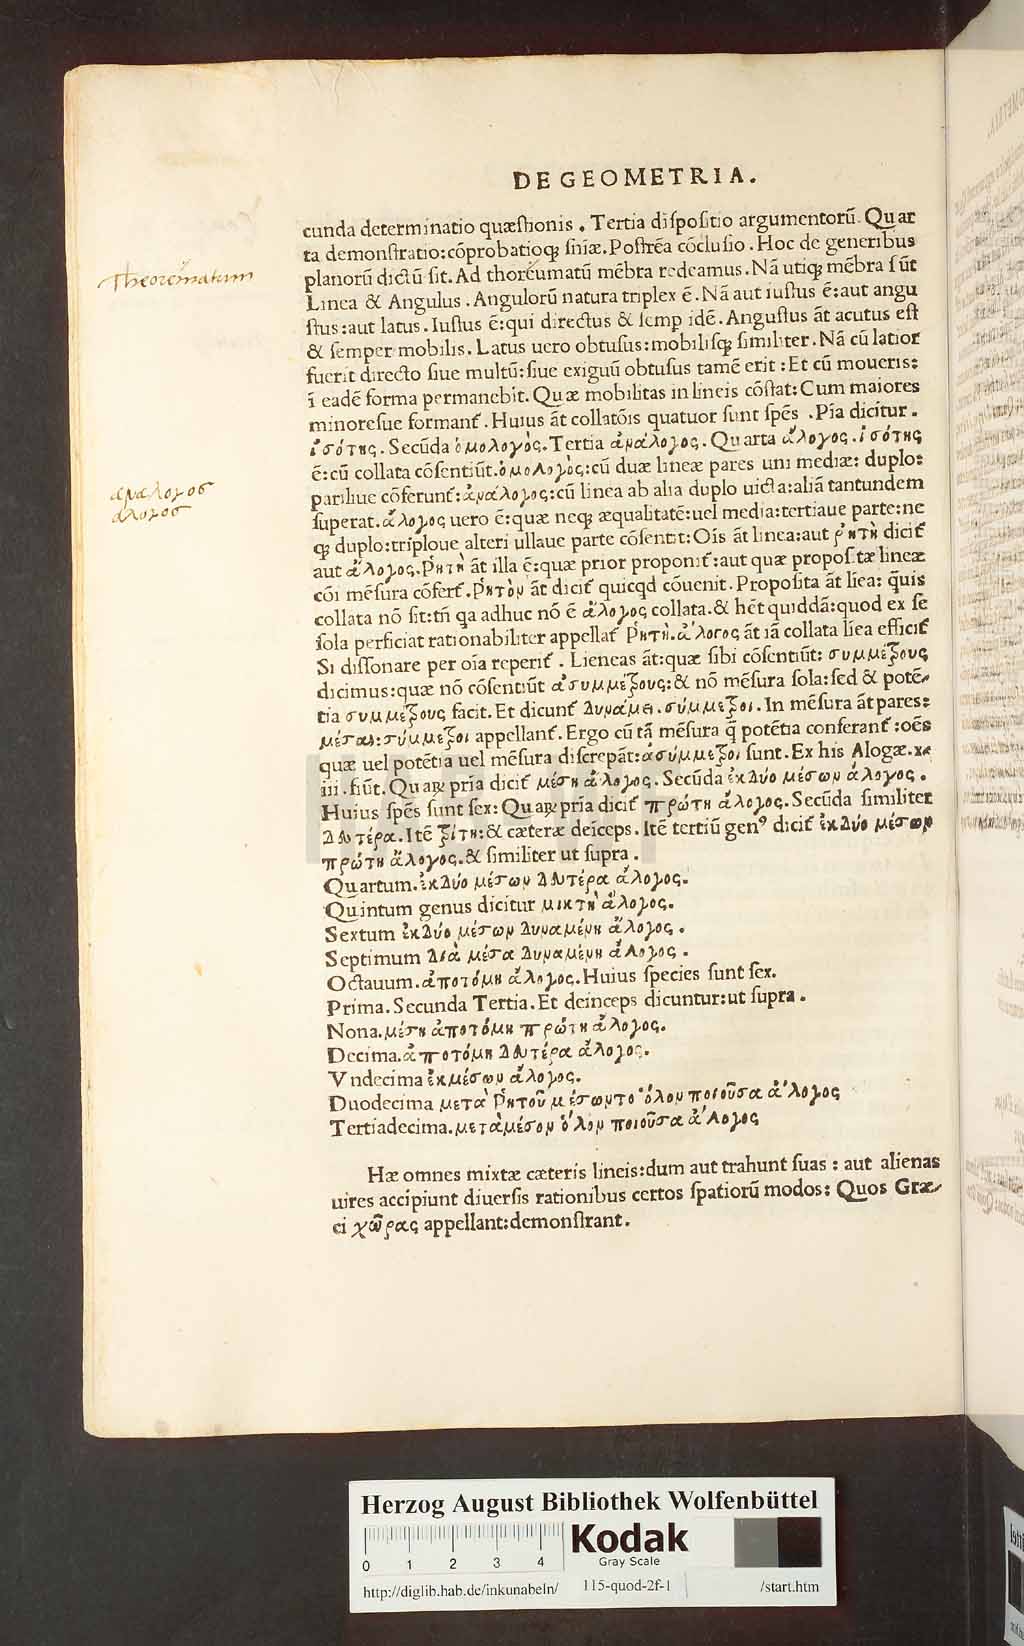 DE GEOMETRIA.
cunda determinatio quæstionis. Tertia dispositio argumentorū. Quar
ta demonstratio: cōprobatioq; sniæ. Postrēa cōclusio. Hoc de generibus
planorū dictū sit. Ad thoreumatū mēbra redeamus. Nā utiq; mēbra sūt
Theorematum
Linea & Angulus. Angulorū natura triplex ē. Nā aut iustus ē: aut angu
stus: aut latus. Iustus ē: qui directus & semp idē. Angustus āt acutus est
& semper mobilis. Latus uero obtusus: mobilisq; similiter. Nā cū latior
fuerit directo siue multū: siue exiguū obtusus tamē erit: Et cū moueris:
ī eadē forma permanebit. Quæ mobilitas in lineis cōstat: Cum maiores
minoresue formant̃. Huius āt collatōis quatuor sunt spēs. Pīa dicitur.
ἰσότης. Secūda ὁμολογὸς. Tertia ἀνάλογος. Quarta ἄλογος. ἰσότης
ē: cū collata cōsentiūt. ὁμολογὸς: cū duæ lineæ pares uni mediæ: duplo:
pariliue cōferunt̃: ἀνάλογος: cū linea ab alia duplo uicta: aliā tantundem
αναλογος
superat. ἄλογος uero ē: quæ neq; æqualitatē: uel media: tertiaue parte: ne
αλογος
q; duplo: triploue alteri ullaue parte cōsentit: Oīs āt linea: aut ῥητὴ dicit̃
aut ἄλογος. Ῥητὴ āt illa ē: quæ prior proponit̃: aut quæ propositæ lineæ
cōi mēsura cōfert̃. Ῥητὸν āt dicit̃ quicqd cōuenit. Proposita āt līea: q̄uis
collata nō sit: tñ qa adhuc nō ē ἄλογος collata. & hēt quiddā: quod ex se
sola perficiat rationabiliter appellat̃ Ῥητὴ. ἄλογος āt iā collata līea efficit̃
Si dissonare per oīa reperit̃. Lieneas āt: quæ sibi cōsentiūt: συμμέτρους
dicimus: quæ nō cōsentiūt ἀσυμμέτρους: & nō mēsura sola: sed & potē-
tia συμμέτρους facit. Et dicunt̃ δυνάμει. σύμμετροι. In mēsura āt pares:
μέσαι: σύμμετροι appellant̃. Ergo cū tā mēsura q̄ potētia conferant̃: oēs
quæ uel potētia uel mēsura discrepāt: ἀσύμμετροι sunt. Ex his Alogæ. x
iii. fiūt. Quaꝝ pīia dicit̃ μέση ἄλογος. Secūda ἐκ δύο μέσων ἄλογος.
Huius spēs sunt sex: Quaꝝ pīia dicit̃ πρώτη ἄλογος. Secūda similiter
δευτέρα. Itē τρίτη: & cæteræ deiceps. Itē tertiū genꝰ dicit̃ ἐκ δύο μέσων
πρώτη ἄλογος. & similiter ut supra.
Quartum. ἐκ δύο μέσων δευτέρα ἄλογος.
Quintum genus dicitur μικτὴ ἄλογος.
Sextum ἐκ δύο μέσων δυναμένη ἄλογος.
Septimum διὰ μέσα δυναμένη ἄλογος.
Octauum. ἀποτόμη ἄλογος. Huius species sunt sex.
Prima. Secunda Tertia. Et deinceps dicuntur: ut supra.
Nona. μέση ἀποτόμη πρώτη ἄλογος.
Decima. ἀποτόμη δευτέρα ἄλογος.
Vndecima ἐκμέσων ἄλογος.
Duodecima μετὰ Ῥητοῦ μέσωντο ὅλον ποιοῦσα ἄλογος
Tertiadecima. μετὰμέσον ὅλον ποιοῦσα ἄλογος
Hæ omnes mixtæ cæteris lineis: dum aut trahunt suas: aut alienas
uires accipiunt diuersis rationibus certos spatiorū modos: Quos Græ-
ci χῶρας appellant: demonstrant.
Herzog August Bibliothek Wolfenbüttel
Kodak
Gray Scale
0 1 2 3 4
http://diglib.hab.de/inkunabeln/ 115-quod-2f-1 /start.htm